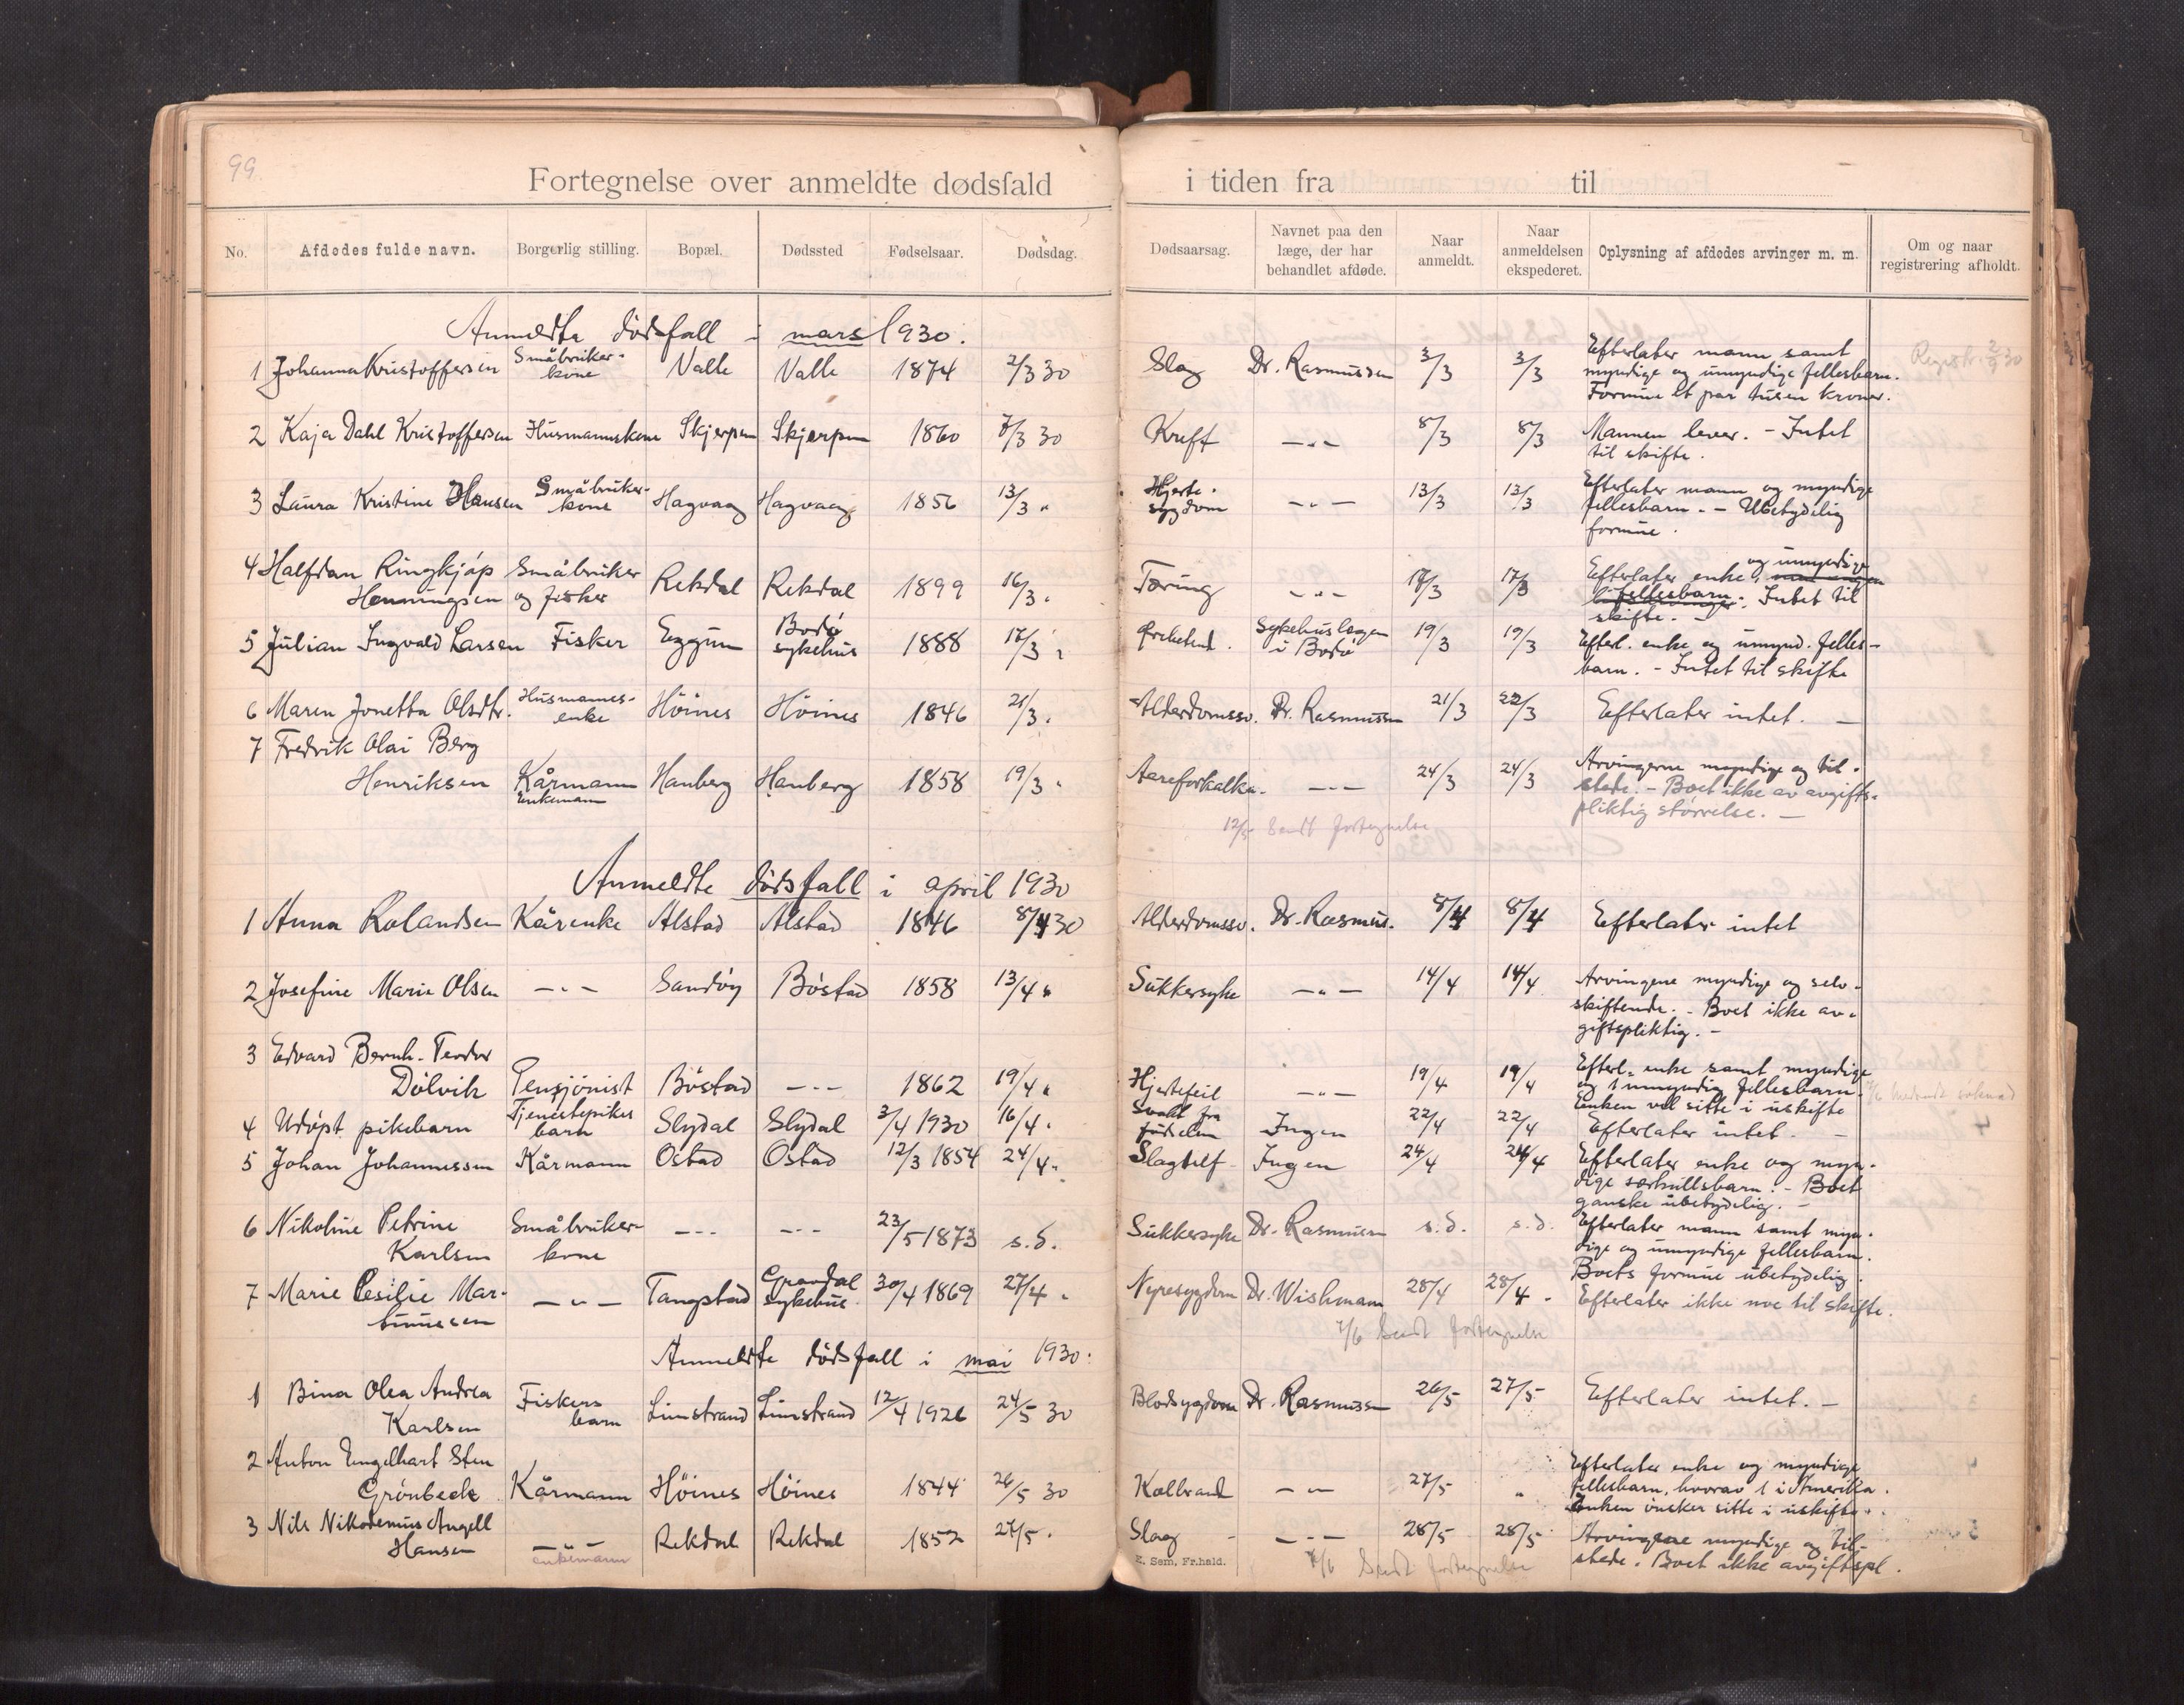 99.
Fortegnelse over anmeldte dødsfald i tiden fra til
No. Afdødes fulde navn. Borgerlig stilling. Bopæl. Dødssted Fødselsaar. Dødsdag. Dødsaarsag. Navnet paa den læge, der har behandlet afdøde. Naar anmeldt. Naar anmeldelsen ekspederet. Oplysning af afdødes arvinger m. m. Om og naar registrering afholdt.
Anmeldte dødsfall i mars 1930.
1 Johanna Kristoffersen Småbruker-kone Valle Valle 1874 2/3 30 Slag Dr. Rasmussen 3/3 3/3 Efterlater mann samt
myndige og umyndige fellesbarn.
Formue et par tusen kroner.
Registr. 2/9 30
2 Kaja Dahl Kristoffersen Husmannskone Skjerpen Skjerpen 1860 7/3 30 Kreft -"- 8/3 8/3 Mannen lever. - Intet
til skifte.
3 Laura Kristine Hansen Småbruker-kone Hagvaag Hagvaag 1856 13/3 " Hjerte-sygdom -"- 13/3 13/3 Efterlater mann og myndige
fellesbarn. - Ubetydelig
formue.
4 Halfdan Ringkjøp Henningsen Småbruker og fisker Rekdal Rekdal 1899 16/3 " Tæring -"- 17/3 17/3 Efterlater enke og umyndige
fellesbarn. Intet til
skifte. -
5 Julian Ingvald Larsen Fisker Eggum Bodø sykehus 1888 17/3 " Sykehuslægen i Bodø 19/3 19/3 Efterl. enke og umynd. felles-
barn. - Intet til skifte
6 Maren Jonetta Olsdtr. Husmannsenke Höines Höines 1846 21/3 " Alderdomssv. Dr. Rasmussen 21/3 22/3 Efterlater intet. -
7 Fredrik Olai Berg
Henriksen Kårmann Enkemann Hanberg Hanberg 1858 19/3 " Aareforkalkn. -"- 24/3 24/3 Arvingerne myndige og til-
stede. - Boet ikke av avgifts-
pliktig størrelse. -
12/5 Sendt fortegnelse
Anmeldte dødsfall i april 1930
1 Anna Rolandsen Kårenke Alstad Alstad 1846 8/4 30 Alderdomssv. Dr. Rasmus. 8/4 8/4 Efterlater intet
2 Josefine Marie Olsen -"- Sandöy Böstad 1858 13/4 " Sukkersyke -"- 14/4 14/4 Arvingene myndige og selv-
skiftende. - Boet ikke av-
giftspliktig. -
3 Edvard Bernh. Teodor
Dölvik Pensjönist Böstad -"- 1862 19/4 " Hjertefeil -"- 19/4 19/4 Efterl. enke samt myndige
og 1 umyndig fellesbarn.
Enken vil sitte i uskifte
4 Udøpt pikebarn Tjenestepikes barn Slydal Slydal 3/4 1930 16/4 " Svakt fra fødselen Ingen 22/4 22/4 Efterlater intet. -
5 Johan Johannessen Kårmann Ostad Ostad 12/3 1854 24/4 " Slagtilf. Ingen 24/4 24/4 Efterlater enke og myn-
dige særkullsbarn. - Boet
ganske ubetydelig. -
6 Nikoline Petrine
Karlsen Småbruker-kone -"- -"- 23/5 1873 s.d. Sukkersyke Dr. Rasmussen s.d. s.d. Efterlater mann samt myn-
dige og umyndige fellesbarn.
Boets formue ubetydelig.
7 Marie Cesilie Mar-
tinussen -"- Tangstad Gravdal sykehus 30/4 1869 27/4 " Nyresygdom Dr. Wishmann 28/4 28/4 Efterlater ikke noe til skifte.
7/6 Sendt fortegnelse
Anmeldte dødsfall i mai 1930.
1 Bina Olea Andrea
Karlsen Fiskers barn Limstrand Limstrand 12/4 1926 24/5 30 Blodsygdom Dr. Rasmussen 26/5 27/5 Efterlater intet. -
2 Anton Engelhart Sten
Grönbeck Kårmann Höines Höines 1844 26/5 30 Kolbrand -"- 27/5 " Efterlater enke og myndige
fellesbarn, hvorav 1 i Amerika.
Enken önsker sitte i uskifte.
3 Nils Nikodemus Angell
Hansen -"- enkemann Rekdal Rekdal 1852 27/5 " Slag -"- 28/5 28/5 Arvingene myndige og til-
stede. Boet ikke avgiftspl.
E. Sem, Fr.hald.
7/6 Sendt fortegnelse